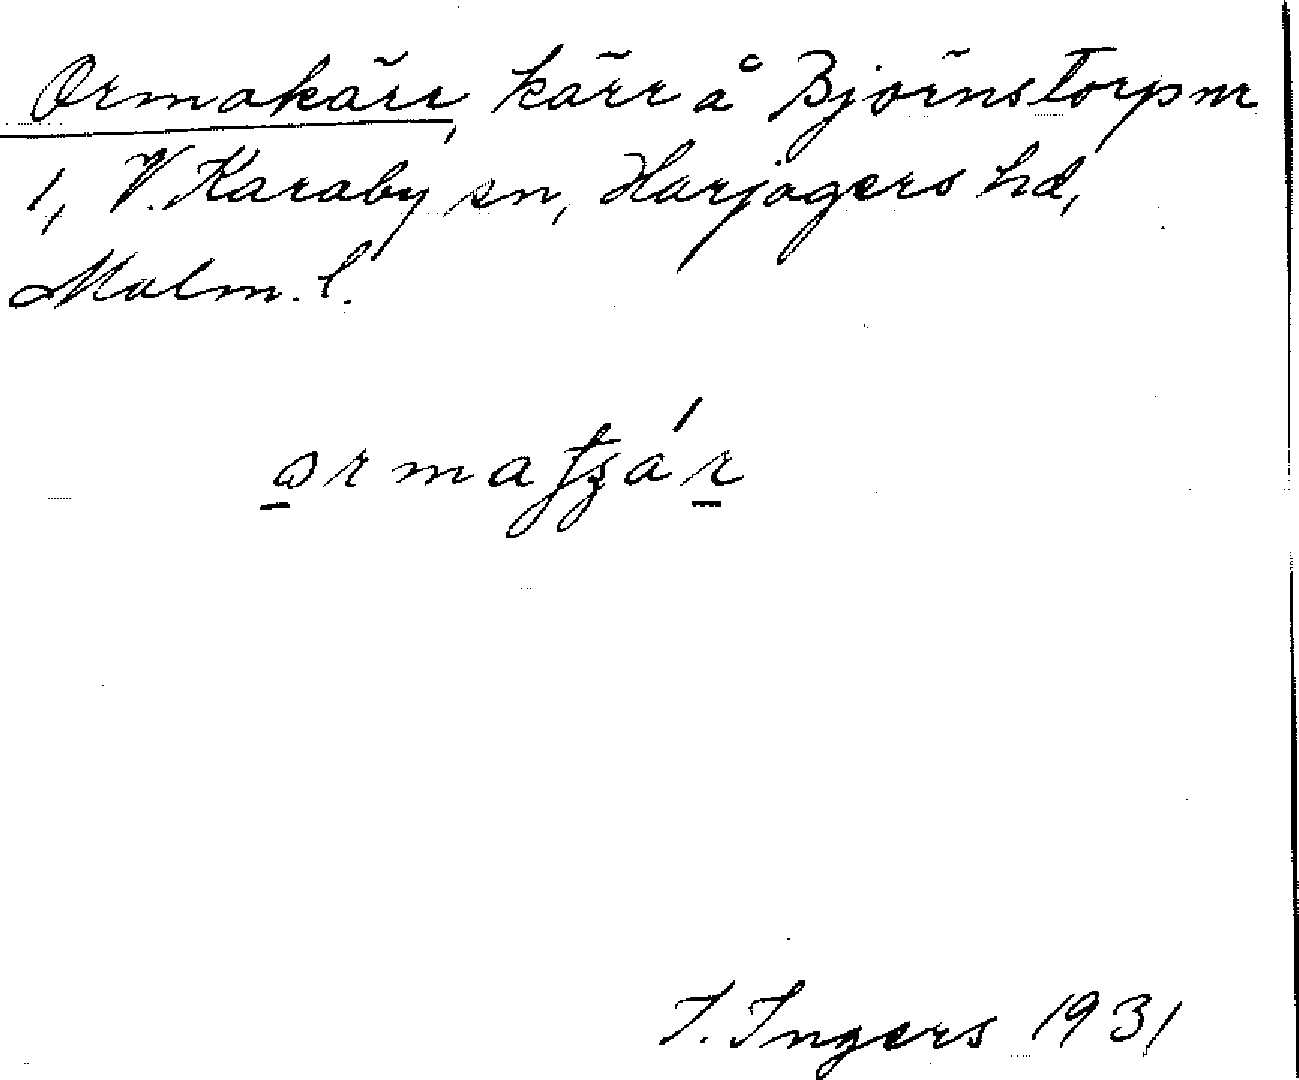 Ormakärr, kärr å Björnstorp nr
1, V. Karaby sn, Harjagers hd,
Malm. l.
I. Ingers 1931